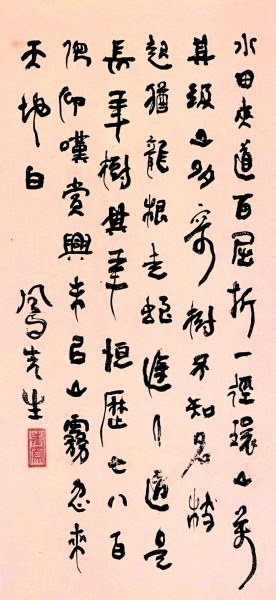 水田夾道百屈折一徑環山萬
其級山多奇樹不知名枝
起猶龍根走蛇進道是
長年樹其年恒歷七八百
俯仰嘆賞興未已山霧忽來
天地白
先生